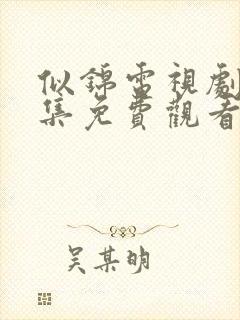 似錦電視劇
集免費觀看
吳某明